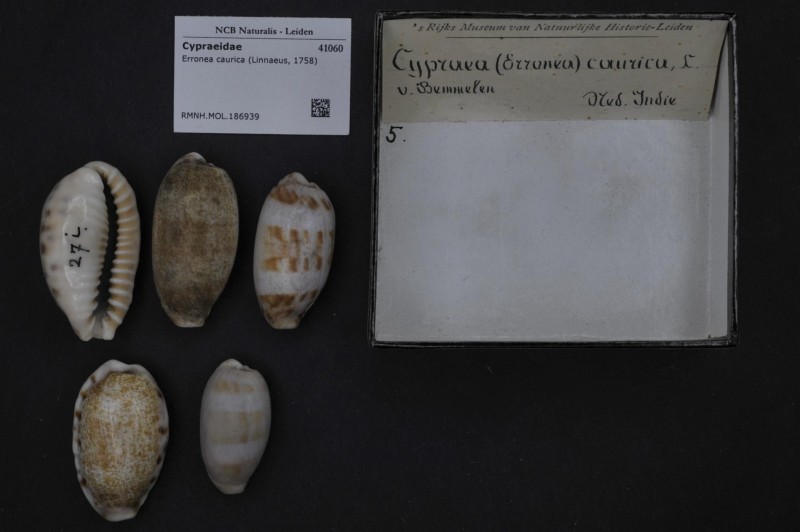 NCB Naturalis - Leiden
Cypraeidae 41060
Erronea caurica (Linnaeus, 1758)
RMNH.MOL.186939
's Rijks Museum van Natuurlijke Historie-Leiden
Cypraea (Erronea) caurica, L.
v. Bemmelen
Ned. Indie
5.
27 i.